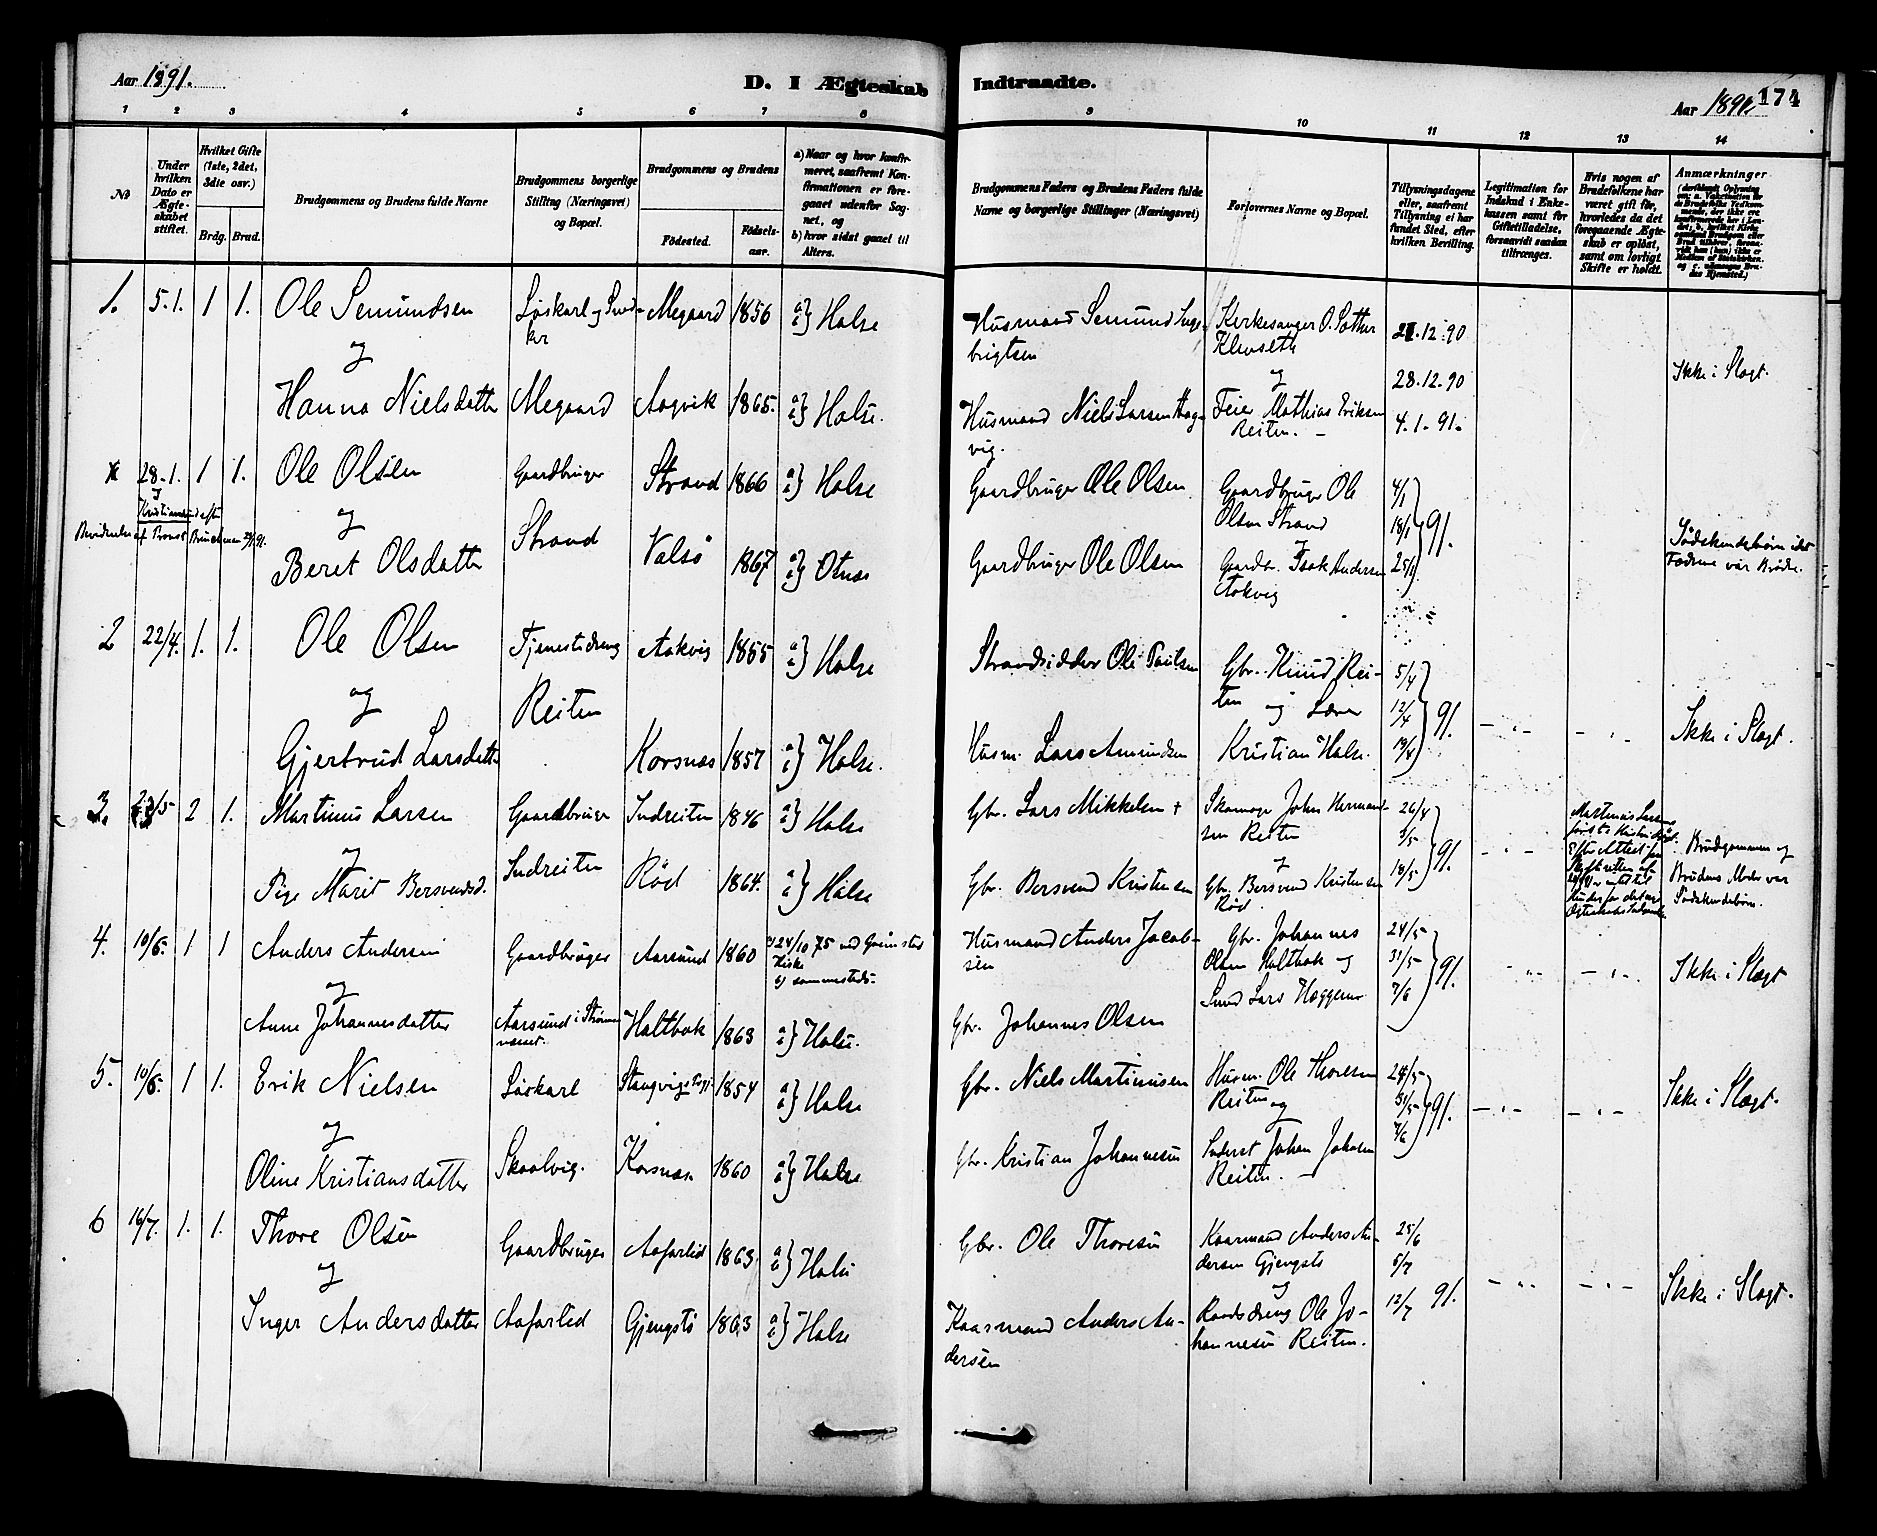 Aar 1891.
D. I Ægteskab Indtraadte.
Aar 1891. 174
1 2 3 4 5 6 7 8 9 10 11 12 13 14
No
Under hvilken Dato er Ægteskabet stiftet.
Hvilket Gifte (1ste, 2det, 3die osv.)
Brdg. Brud.
Brudgommens og Brudens fulde Navne
Brudgommens borgerlige Stilling (Næringsvei) og Bopæl.
Brudgommens og Brudens
Fødested. Fødselsaar.
a) Naar og hvor konfirmeret, saafremt Konfirmationen er foregaaet udenfor Sognet, og
b) hvor sidst gaaet til Alters.
Brudgommens Faders og Brudens Faders fulde Navne og borgerlige Stillinger (Næringsvei)
Forlovernes Navne og Bopæl.
Tillysningsdagene eller, saafremt Tillysning ei har fundet Sted, efter hvilken Bevilling.
Legitimation for Indskud i Enkekassen samt for Giftetilladelse, forsaavidt saadan tiltrænges.
Hvis nogen af Brudefolkene har været gift før, hvorledes da det foregaaende Ægteskab er opløst, samt om lovligt Skifte er holdt.
Anmærkninger
1. 5.1. 1 1. Ole Semundsen Løskarl og Snedker Megaard 1856 a b} Halse Husmand Semund Ingebrigtsen Kirkesanger O. Petter Klevseth 21.12.90
og og 28.12.90 Ikke i Slægt.
Hanna Nielsdatter Megaard Aagvik 1865. a b} Halse. Husmand Niels Larsen Aagvig. Feier Mathias Eriksen Reiten. 4.1.91.
28.1. 1 1. Ole Olsen Gaardbruger Strand 1866 a b} Halse Gaardbruger Ole Olsen Gaardbruger Ole Olsen Strand 4/1
og og 18/1 91. Sødskendebørn idet Fædrene var Brødre.
Beret Olsdatter Strand Valsø 1867 a b} Otnes Gaardbruger Ole Olsen Gaardbr. Isak Andersen Aakvig 25/1
2 22/4. 1. 1. Ole Olsen Tjenestedreng Aakvig 1855 a b} Halse Strandsidder Ole Paulsen Gbr. Knud Reiten og Lærer 5/4
og Reiten 12/4 91. Ikke i Slægt.
Gjertrud Larsdatter Korsnæs 1857 a b} Halse. Husm. Lars Amundsen Kristian Halse. 19/4
3. 2 1. Martinus Larsen Gaardbruger Indreiten 1846 a b} Halse Gbr. Lars Mikkelsen + Skomager John Hermandsen Reiten 26/4
og og 3/5 91. Brudgommen og Brudens Moder var Sødskendebørn.
Pige Marit Bersvendsd. Indreiten Rød 1864. a b} Halse Gbr. Bersvend Kristensen Gbr. Bersvend Kristensen Rød. 18/5
4. 10/6. 1 1 Anders Andersen Gaardbruger Aarsund 1860 a) 24/10 75 ved Grimstad Kirke b) sammesteds. Husmand Anders Jacobsen Gbr. Johannes Olsen Haltbak og 24/5
og 31/5 91. Ikke i Slægt
Anne Johannesdatter Aarsund i Strømsnæsset. Haltbak 1863 a b} Halse. Gbr. Johannes Olsen Smed Lars Heggem 7/6
5. 10/6. 1 1. Erik Nielsen Løskarl Stangvigs Prgj. 1854 a b} Halse Gbr. Niels Martinusen Husm. Ole Thoresen Reiten og 24/5
og 31/5 91. Ikke i Slægt.
Oline Kristiansdatter Skaalvig. Korsnæs. 1860 a b} Halse Gbr. Kristian Johannesen Johan Johnsen Reiten. 7/6
6 16/7. 1. 1. Thore Olsen Gaardbruger Aafarlid 1863 a b} Halse Gbr. Ole Thoresen Kaarmand Anders Andersen Gjengstø 25/6
og og 5/7 91. Ikke i Slægt.
Inger Andersdatter Aafarlid Gjengstø 1863 a b} Halse Kaarmand Anders Andersen Ole Johannesen Reiten. 12/7